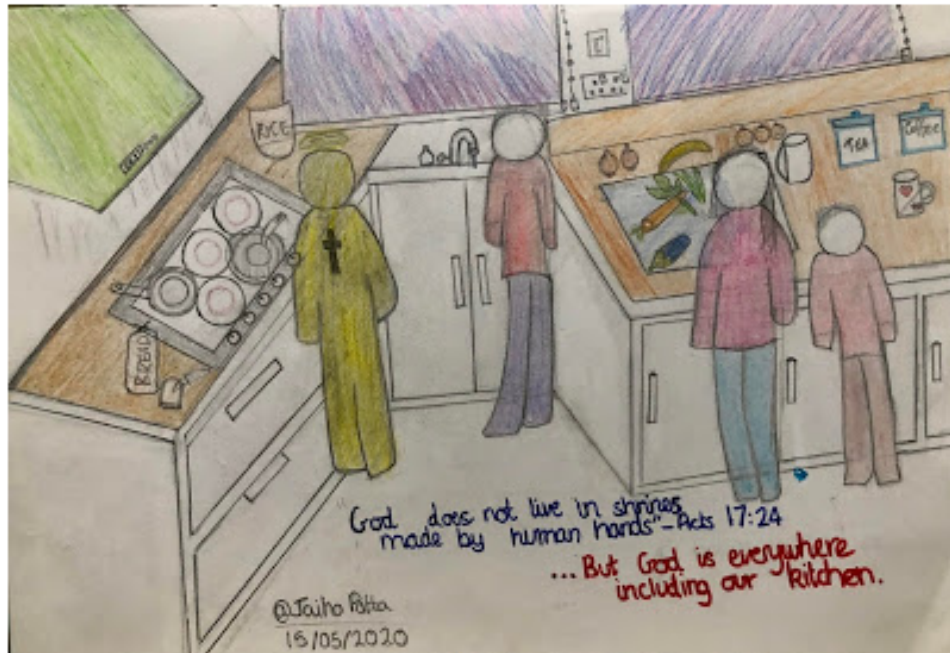 RICE
TEA
Coffee
BREAD
God does not live in shrines
made by human hands"-Acts 17:24
...But God is everywhere
including our kitchen.
@Jaiho Potta
15/05/2020